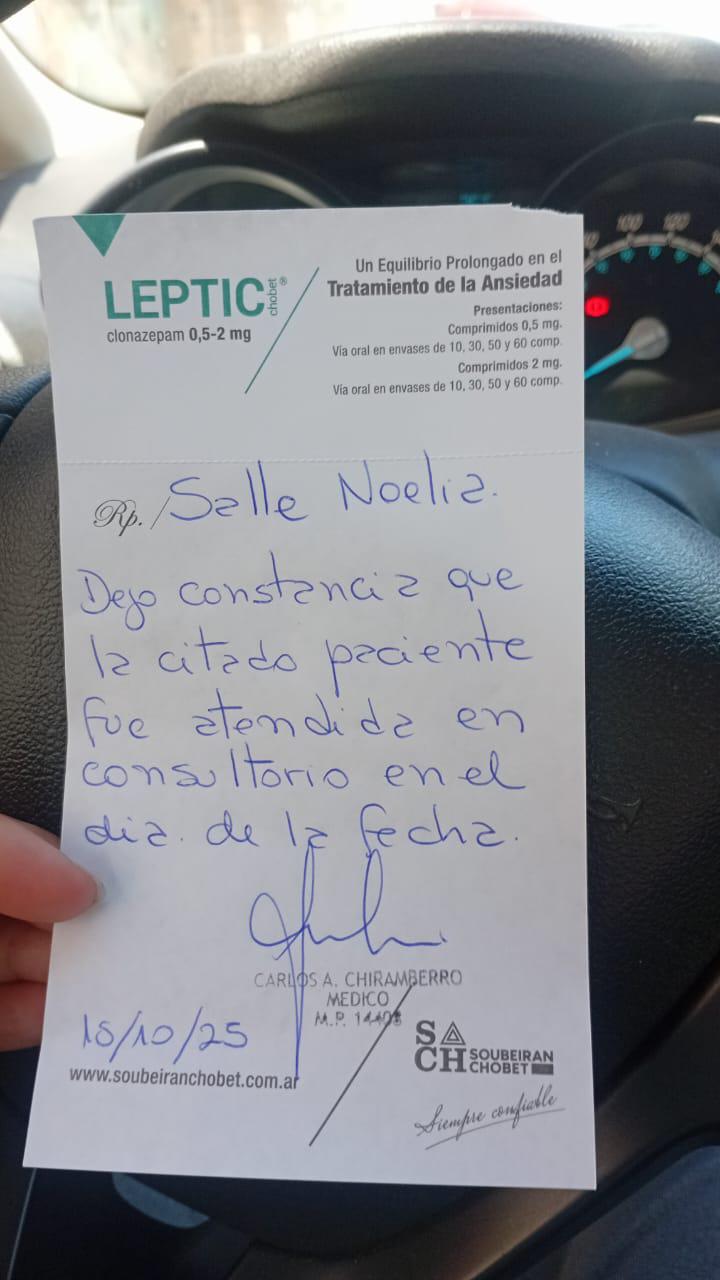 LEPTIC chobet®
clonazepam 0,5-2 mg
Un Equilibrio Prolongado en el
Tratamiento de la Ansiedad
Presentaciones:
Comprimidos 0,5 mg.
Vía oral en envases de 10, 30, 50 y 60 comp.
Comprimidos 2 mg.
Vía oral en envases de 10, 30, 50 y 60 comp.
Rp./ Salle Noelia.
Dejo constancia que
la citado paciente
fue atendida en
consultorio en el
dia. de la fecha.
CARLOS A. CHIRAMBERRO
MEDICO
M.P. 14403
15/10/25
www.soubeiranchobet.com.ar
SACH SOUBEIRAN
CHOBET
Siempre confiable
100 120